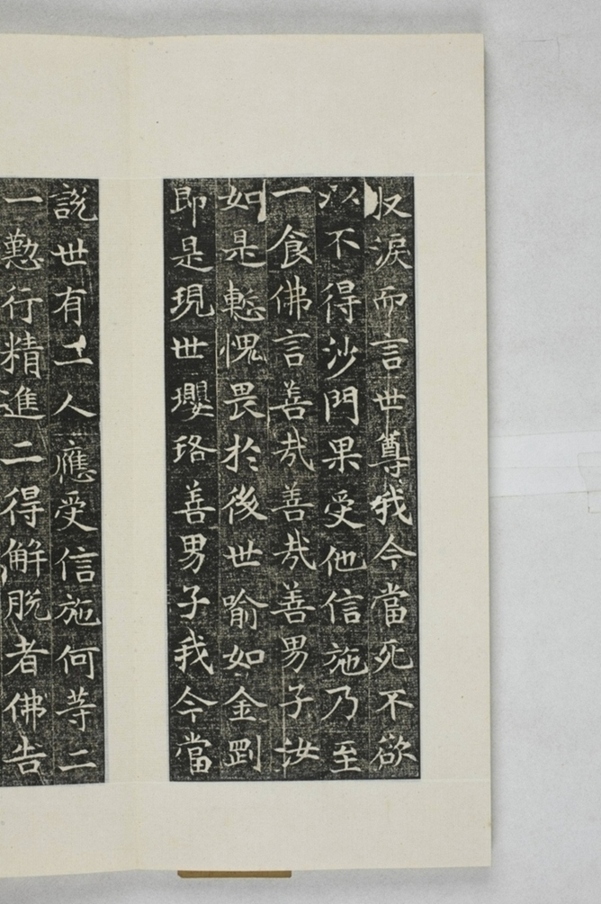 収淚而言世尊我今當死不欲
以不得沙門果受他信施乃至
一食佛言善哉善哉善男子汝
如是慙愧畏於後世喻如金剛
即是現世瓔珞善男子我今當
說世有二人應受信施何等二
一懃行精進二得解脫者佛告